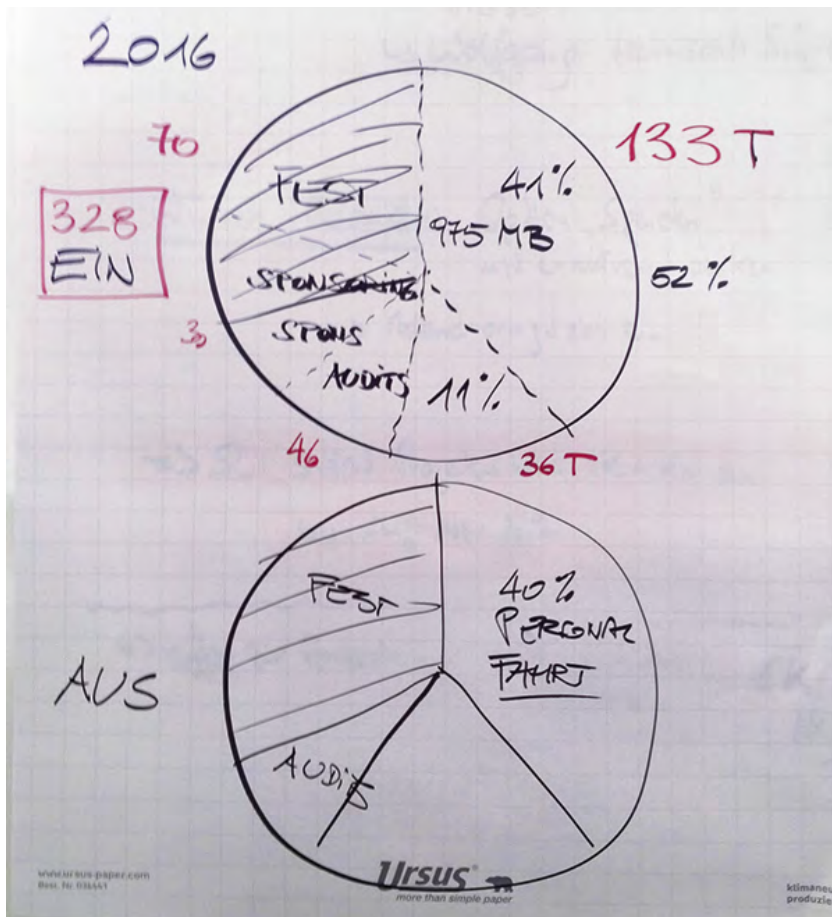 2016
70
133 T
41%
FEST
328
EIN
975 MB
52%
SPONSORING
30
SPONS
AUDITS
11%
46
36 T
FEST
40%
PERSONAL
FAHRT
AUS
AUDITS
www.ursus-paper.com
Ursus
more than simple paper
klimaneu
produzie